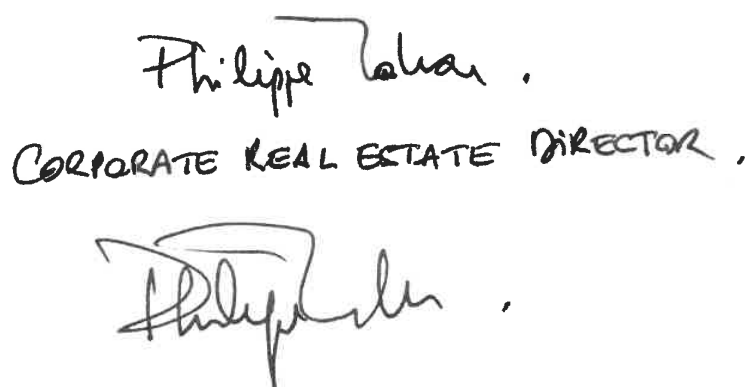 Philippe Tahar.
CORPORATE REAL ESTATE DIRECTOR.